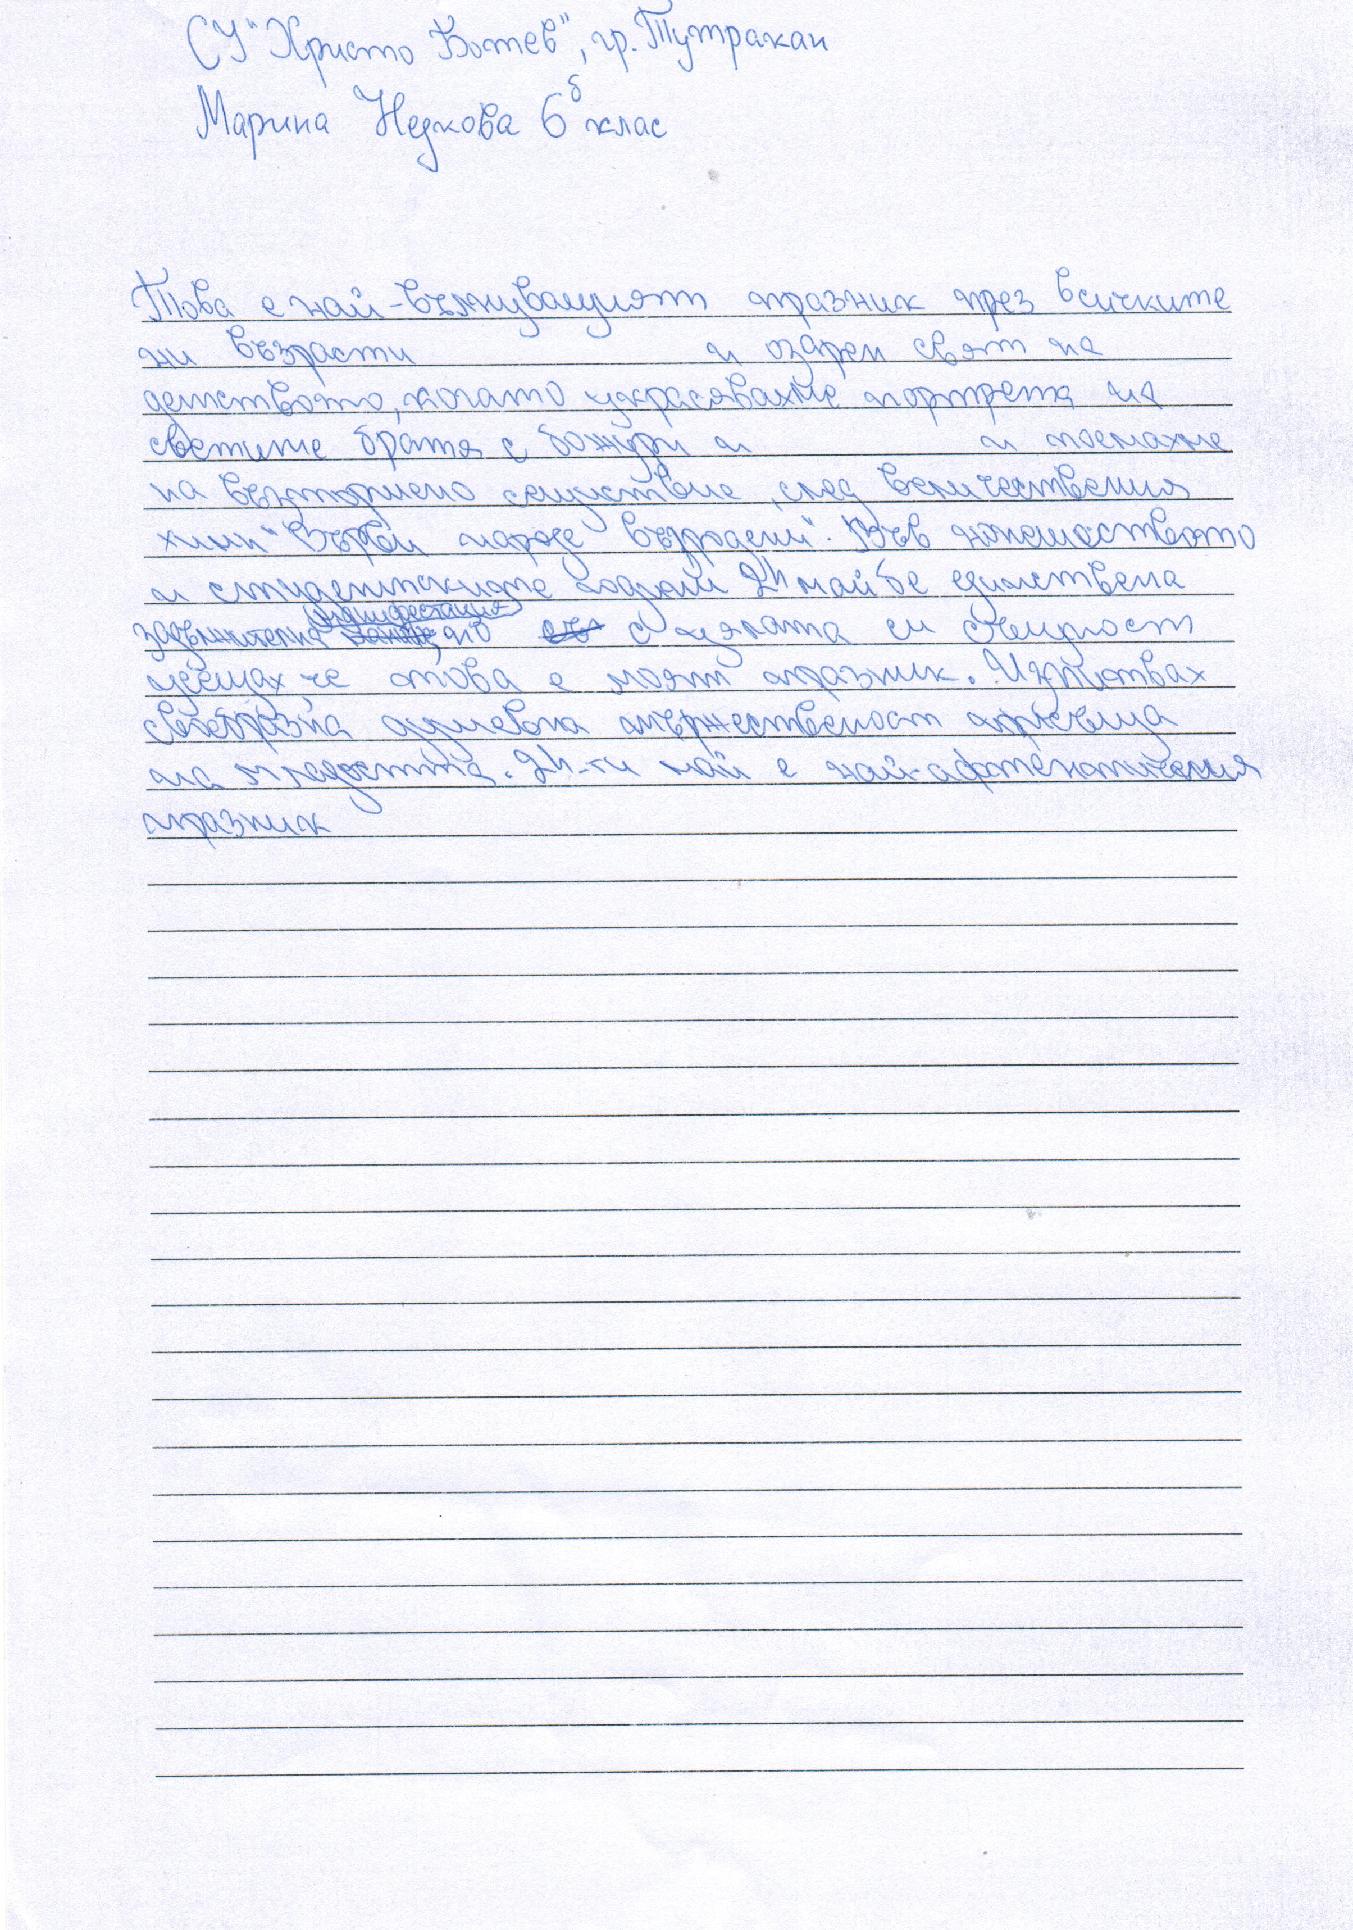 СУ "Христо Ботев", гр. Тутракан
Марина Недкова 6б клас
Това е най-вълнуващият празник през всичките
ни възрасти и озарен свят на
детството, когато украсявахме портрета на
светите братя с божури и и поемахме
на възторжено шествие, след величествения
химн "Върви народе възродени". Във юношеството
и студентските години 24 май бе единствена
задължителна манифестация но с цялата си същност
усещах че това е моят празник. Изпитвах
своеобразна душевна тържественост присъща
на младостта. 24-ти май е най-автентичния
празник